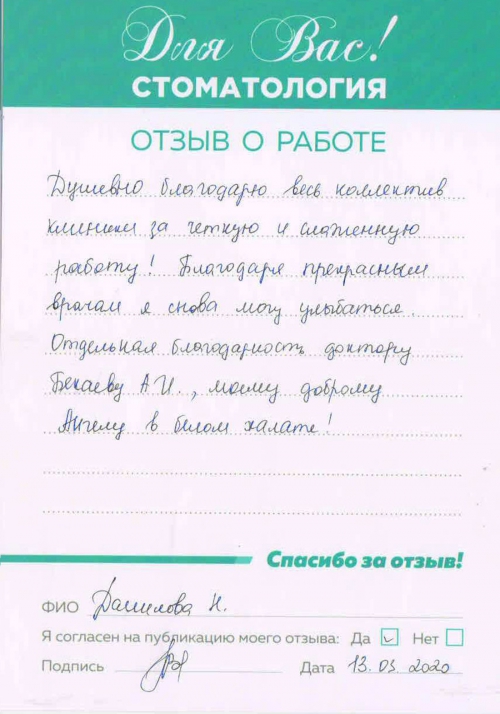 Для Вас!
СТОМАТОЛОГИЯ
ОТЗЫВ О РАБОТЕ
Душевно благодарю весь коллектив
клиники за четкую и слаженную
работу! Благодаря прекрасным
врачам я снова могу улыбаться.
Отдельная благодарность доктору
Бекаеву А.И., моему доброму
Ангелу в белом халате!
Спасибо за отзыв!
ФИО Данилова Н.
Я согласен на публикацию моего отзыва: Да ✓ Нет
Подпись Дата 13.03.2020